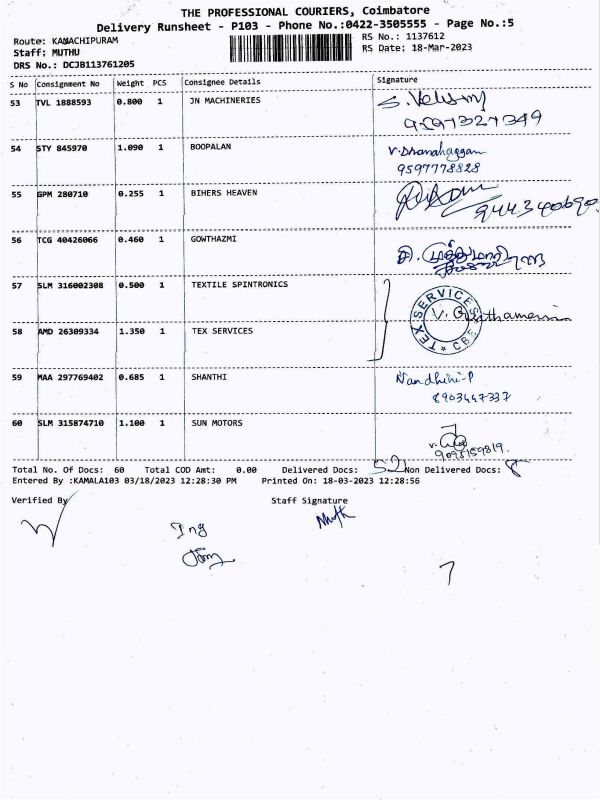 THE PROFESSIONAL COURIERS, Coimbatore
Delivery Runsheet - P103 - Phone No.:0422-3505555 - Page No.:5
Route: KAMACHIPURAM RS No.: 1137612
Staff: MUTHU RS Date: 18-Mar-2023
DRS No.: DCJB113761205
S No Consignment No Weight PCS Consignee Details Signature
53 TVL 1888593 0.800 1 JN MACHINERIES
54 STY 845970 1.090 1 BOOPALAN
9597778828
55 GPM 280710 0.255 1 BIHERS HEAVEN
56 TCG 40426066 0.460 1 GOWTHAZMI
57 SLM 316002308 0.500 1 TEXTILE SPINTRONICS
TEX SERVICES CBE
58 AMD 26309334 1.350 1 TEX SERVICES
59 MAA 297769402 0.685 1 SHANTHI Nandhini-P
8903447337
60 SLM 315874710 1.100 1 SUN MOTORS
Total No. Of Docs: 60 Total COD Amt: 0.00 Delivered Docs: 52 Non Delivered Docs: 8
Entered By :KAMALA103 03/18/2023 12:28:30 PM Printed On: 18-03-2023 12:28:56
Verified By Staff Signature
7